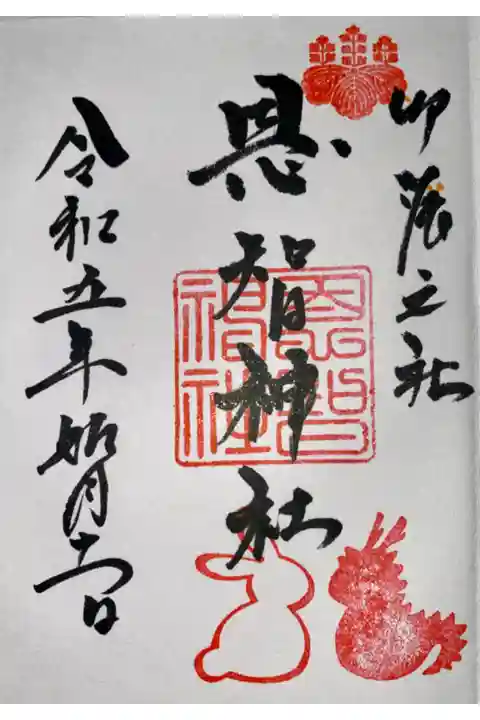 卯辰之社
恩智神社
恩智神社
令和五年如月十一日